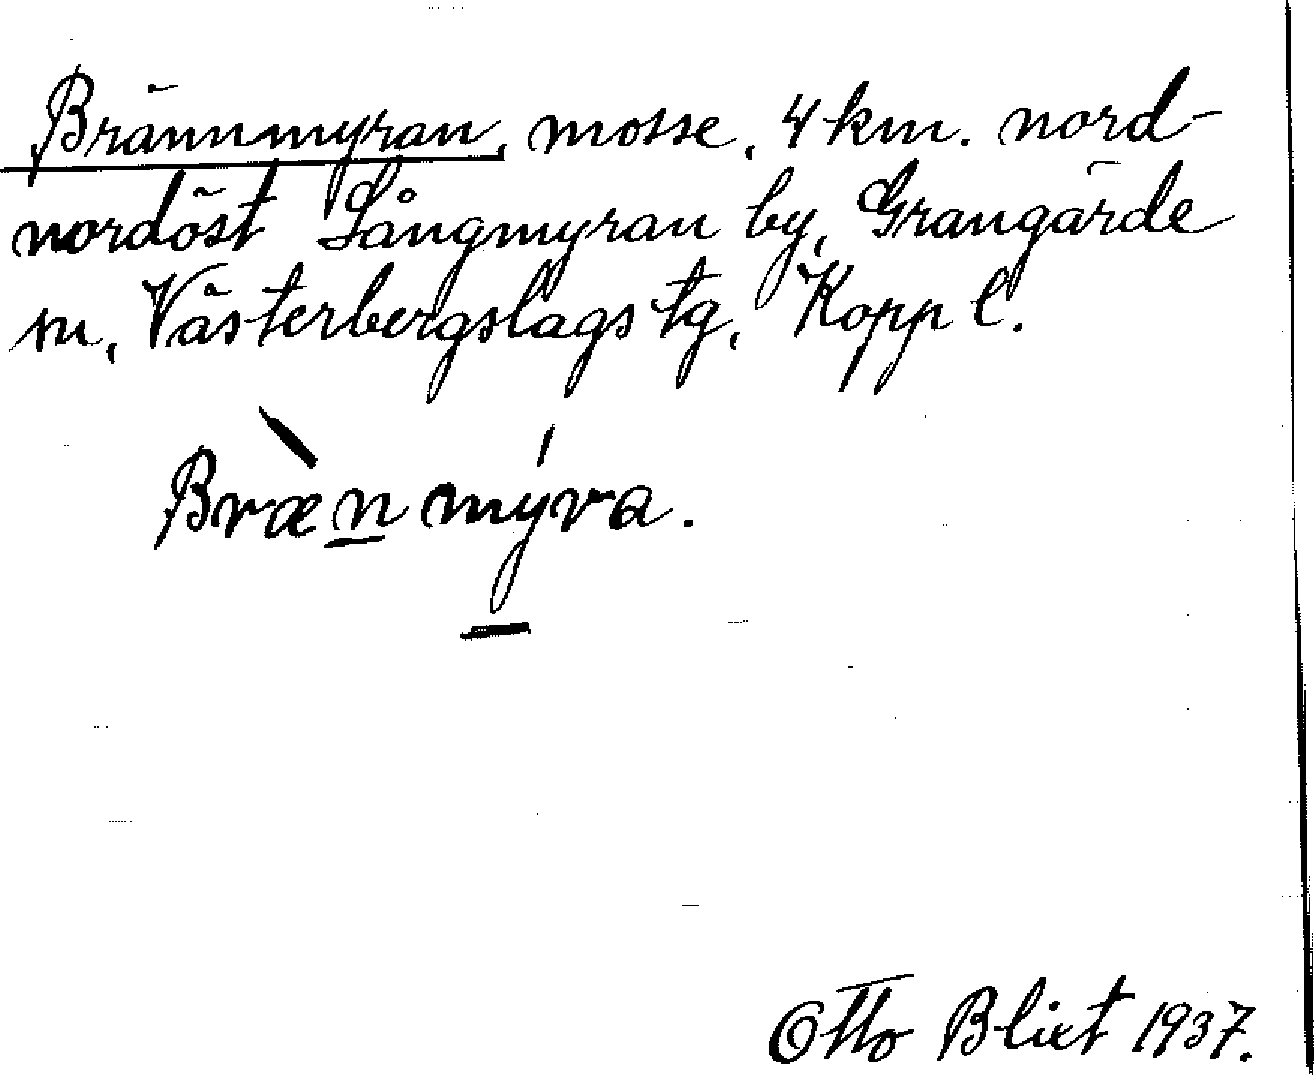 Brännmyran, mosse, 4 km. nord-
nordöst Långmyran by, Grangärde
sn, Västerbergslags tg, Kopp l.
Brænmýra.
Otto Blixt 1937.